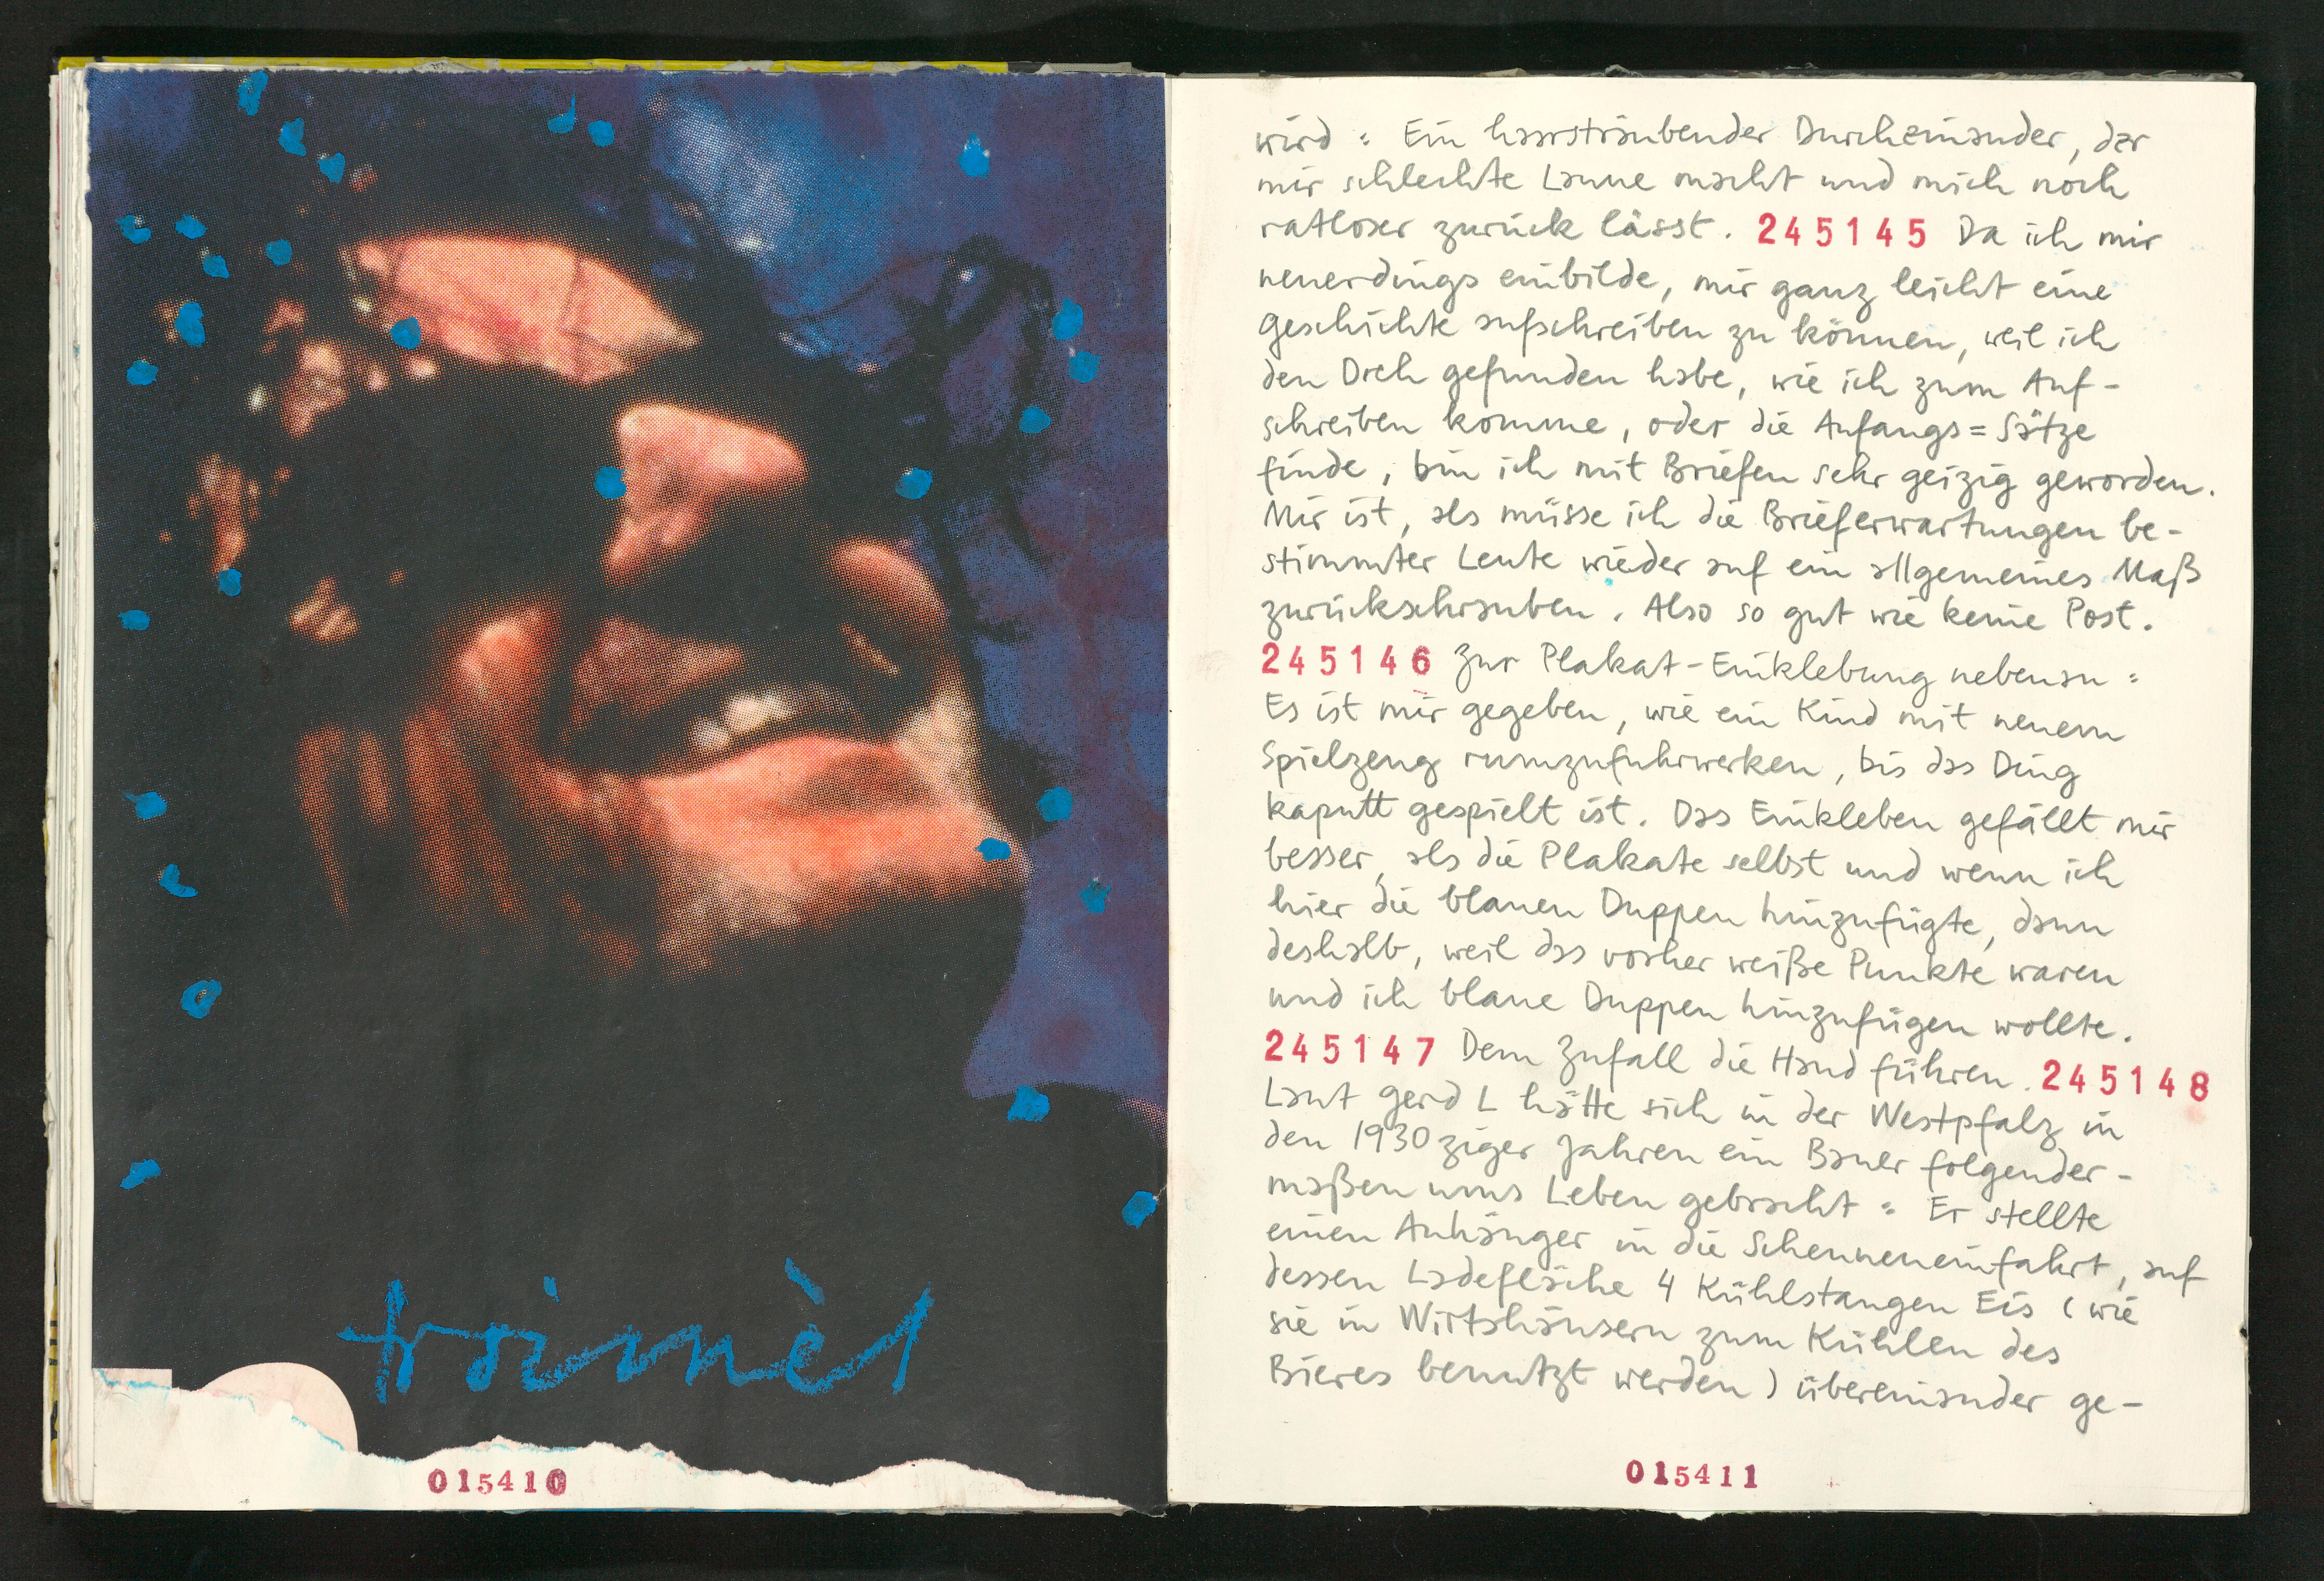 015410
wird : Ein haarsträubender Durcheinander, der
mir schlechte Laune macht und mich noch
ratloser zurück lässt. 245145 Da ich mir
neuerdings einbilde, mir ganz leicht eine
Geschichte aufschreiben zu können, weil ich
den Dreh gefunden habe, wie ich zum Auf-
schreiben komme, oder die Anfangs=Sätze
finde, bin ich mit Briefen sehr geizig geworden.
Mir ist, als müsse ich die Brieferwartungen be-
stimmter Leute wieder auf ein allgemeines Maß
zurückschrauben. Also so gut wie keine Post.
245146 Zur Plakat-Einklebung nebenan :
Es ist mir gegeben, wie ein Kind mit neuem
Spielzeug rumzufuhrwerken, bis das Ding
kaputt gespielt ist. Das Einkleben gefällt mir
besser, als die Plakate selbst und wenn ich
hier die blauen Duppen hinzufügte, dann
deshalb, weil das vorher weiße Punkte waren
und ich blaue Duppen hinzufügen wollte.
245147 Dem Zufall die Hand führen. 245148
Laut Gerd L hätte sich in der Westpfalz in
den 1930ziger Jahren ein Bauer folgender-
maßen ums Leben gebracht : Er stellte
einen Anhänger in die Scheuneneinfahrt, auf
dessen Ladefläche 4 Kühlstangen Eis (wie
sie in Wirtshäusern zum Kühlen des
Bieres benutzt werden) übereinander ge-
015411